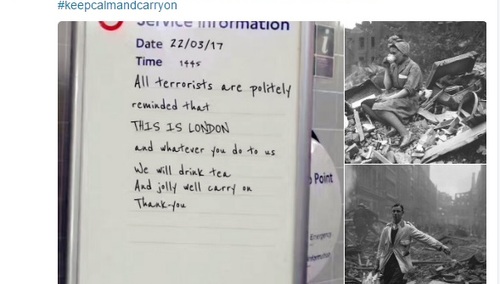 #keepcalmandcarryon
Service Information
Date 22/03/17
Time 1445
All terrorists are politely
reminded that
THIS IS LONDON
and whatever you do to us
We will drink tea
And jolly well carry on
Thank-you
i
Point
Emergency
Information